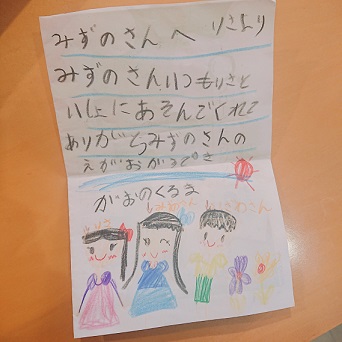 みずのさんへ りさより
みずのさんいつもりさと
いしょにあそんでくれて
ありがとうみずのさんの
えがおがうでき
がおのくるま
りさ